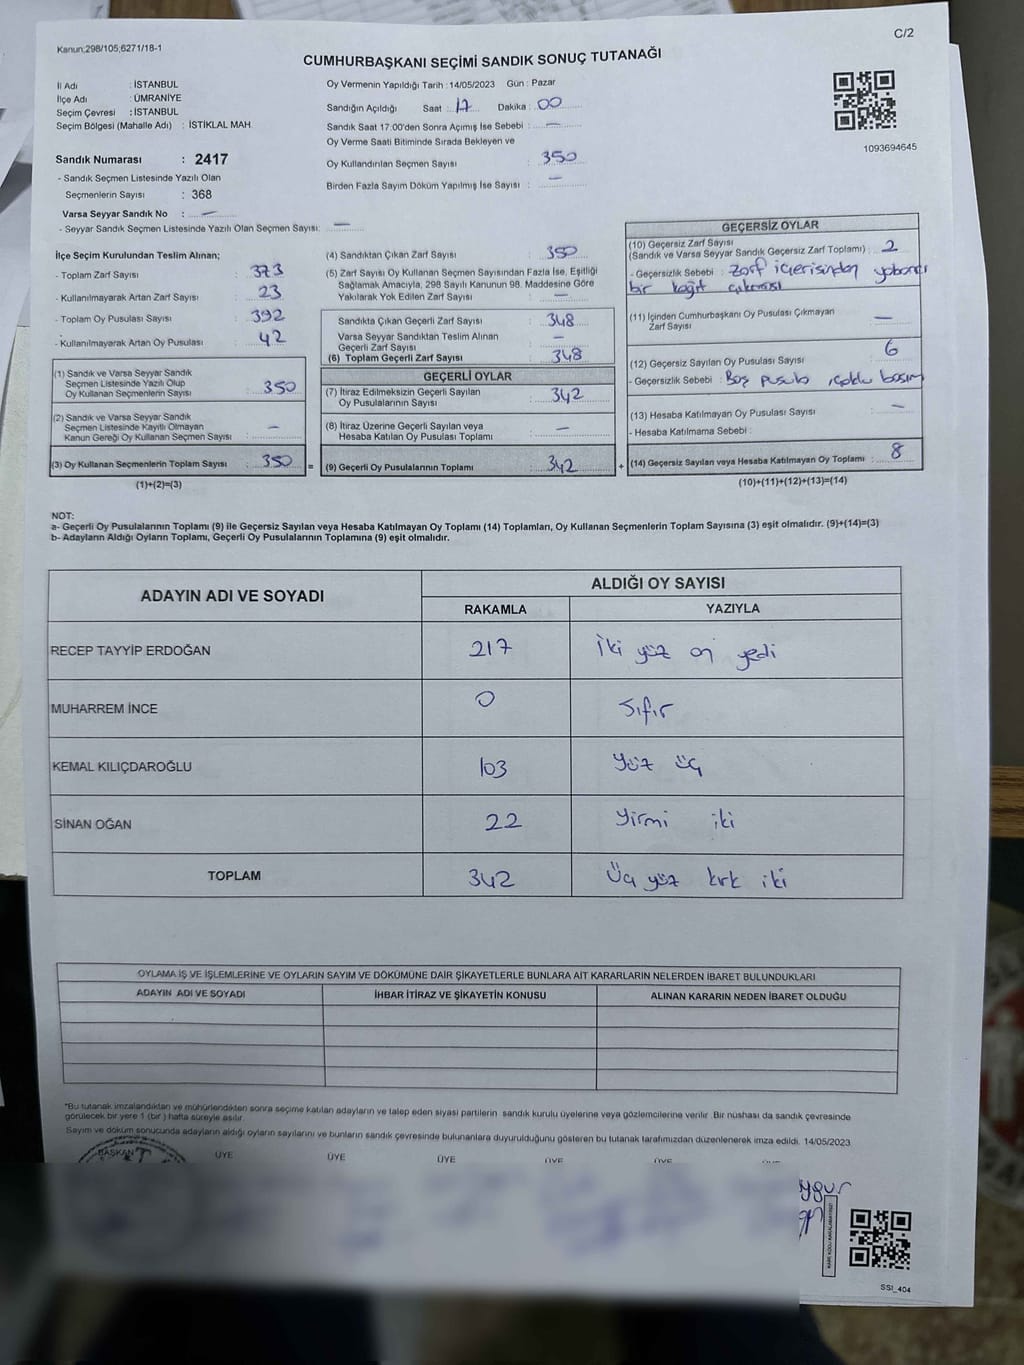 Kanun;298/105,6271/18-1
C/2
CUMHURBAŞKANI SEÇİMİ SANDIK SONUÇ TUTANAĞI
İl Adı : İSTANBUL
İlçe Adı : ÜMRANİYE
Seçim Çevresi : İSTANBUL
Seçim Bölgesi (Mahalle Adı) : İSTİKLAL MAH.
Sandık Numarası : 2417
- Sandık Seçmen Listesinde Yazılı Olan
Seçmenlerin Sayısı : 368
Varsa Seyyar Sandık No : —
- Seyyar Sandık Seçmen Listesinde Yazılı Olan Seçmen Sayısı: —
Oy Vermenin Yapıldığı Tarih : 14/05/2023 Gün : Pazar
Sandığın Açıldığı Saat : 17 Dakika : 00
Sandık Saat 17:00'den Sonra Açımış İse Sebebi : —
Oy Verme Saati Bitiminde Sırada Bekleyen ve
Oy Kullandırılan Seçmen Sayısı : 350
Birden Fazla Sayım Döküm Yapılmış İse Sayısı : —
1093694645
İlçe Seçim Kurulundan Teslim Alınan;
- Toplam Zarf Sayısı : 373
- Kullanılmayarak Artan Zarf Sayısı : 23
- Toplam Oy Pusulası Sayısı : 392
- Kullanılmayarak Artan Oy Pusulası : 42
(1) Sandık ve Varsa Seyyar Sandık
Seçmen Listesinde Yazılı Olup
Oy Kullanan Seçmenlerin Sayısı : 350
(2) Sandık ve Varsa Seyyar Sandık
Seçmen Listesinde Kayıtlı Olmayan
Kanun Gereği Oy Kullanan Seçmen Sayısı : —
(3) Oy Kullanan Seçmenlerin Toplam Sayısı : 350
(1)+(2)=(3)
=
(4) Sandıktan Çıkan Zarf Sayısı : 350
(5) Zarf Sayısı Oy Kullanan Seçmen Sayısından Fazla İse, Eşitliği
Sağlamak Amacıyla, 298 Sayılı Kanunun 98. Maddesine Göre
Yakılarak Yok Edilen Zarf Sayısı : —
Sandıkta Çıkan Geçerli Zarf Sayısı : 348
Varsa Seyyar Sandıktan Teslim Alınan
Geçerli Zarf Sayısı : —
(6) Toplam Geçerli Zarf Sayısı : 348
GEÇERLİ OYLAR
(7) İtiraz Edilmeksizin Geçerli Sayılan
Oy Pusulalarının Sayısı : 342
(8) İtiraz Üzerine Geçerli Sayılan veya
Hesaba Katılan Oy Pusulası Toplamı : —
(9) Geçerli Oy Pusulalarının Toplamı : 342
+
GEÇERSİZ OYLAR
(10) Geçersiz Zarf Sayısı
(Sandık ve Varsa Seyyar Sandık Geçersiz Zarf Toplamı) : 2
- Geçersizlik Sebebi : Zarf içerisinden yabancı
bir kağıt çıkması
(11) İçinden Cumhurbaşkanı Oy Pusulası Çıkmayan
Zarf Sayısı : —
(12) Geçersiz Sayılan Oy Pusulası Sayısı : 6
- Geçersizlik Sebebi : Boş pusula, çoklu basım
(13) Hesaba Katılmayan Oy Pusulası Sayısı : —
- Hesaba Katılmama Sebebi :
(14) Geçersiz Sayılan veya Hesaba Katılmayan Oy Toplamı : 8
(10)+(11)+(12)+(13)=(14)
NOT:
a- Geçerli Oy Pusulalarının Toplamı (9) ile Geçersiz Sayılan veya Hesaba Katılmayan Oy Toplamı (14) Toplamları, Oy Kullanan Seçmenlerin Toplam Sayısına (3) eşit olmalıdır. (9)+(14)=(3)
b- Adayların Aldığı Oyların Toplamı, Geçerli Oy Pusulalarının Toplamına (9) eşit olmalıdır.
ADAYIN ADI VE SOYADI
ALDIĞI OY SAYISI
RAKAMLA YAZIYLA
RECEP TAYYİP ERDOĞAN 217 İki yüz on yedi
MUHARREM İNCE 0 Sıfır
KEMAL KILIÇDAROĞLU 103 Yüz üç
SİNAN OĞAN 22 Yirmi iki
TOPLAM 342 Üç yüz kırk iki
OYLAMA İŞ VE İŞLEMLERİNE VE OYLARIN SAYIM VE DÖKÜMÜNE DAİR ŞİKAYETLERLE BUNLARA AİT KARARLARIN NELERDEN İBARET BULUNDUKLARI
ADAYIN ADI VE SOYADI İHBAR İTİRAZ VE ŞİKAYETİN KONUSU ALINAN KARARIN NEDEN İBARET OLDUĞU
*Bu tutanak imzalandıktan ve mühürlendikten sonra seçime katılan adayların ve talep eden siyasi partilerin sandık kurulu üyelerine veya gözlemcilerine verilir. Bir nüshası da sandık çevresinde
görülecek bir yere 1 (bir) hafta süreyle asılır.
Sayım ve döküm sonucunda adayların aldığı oyların sayılarını ve bunların sandık çevresinde bulunanlara duyurulduğunu gösteren bu tutanak tarafımızdan düzenlenerek imza edildi. 14/05/2023
BAŞKAN ÜYE ÜYE ÜYE ÜYE ÜYE
SSI_404